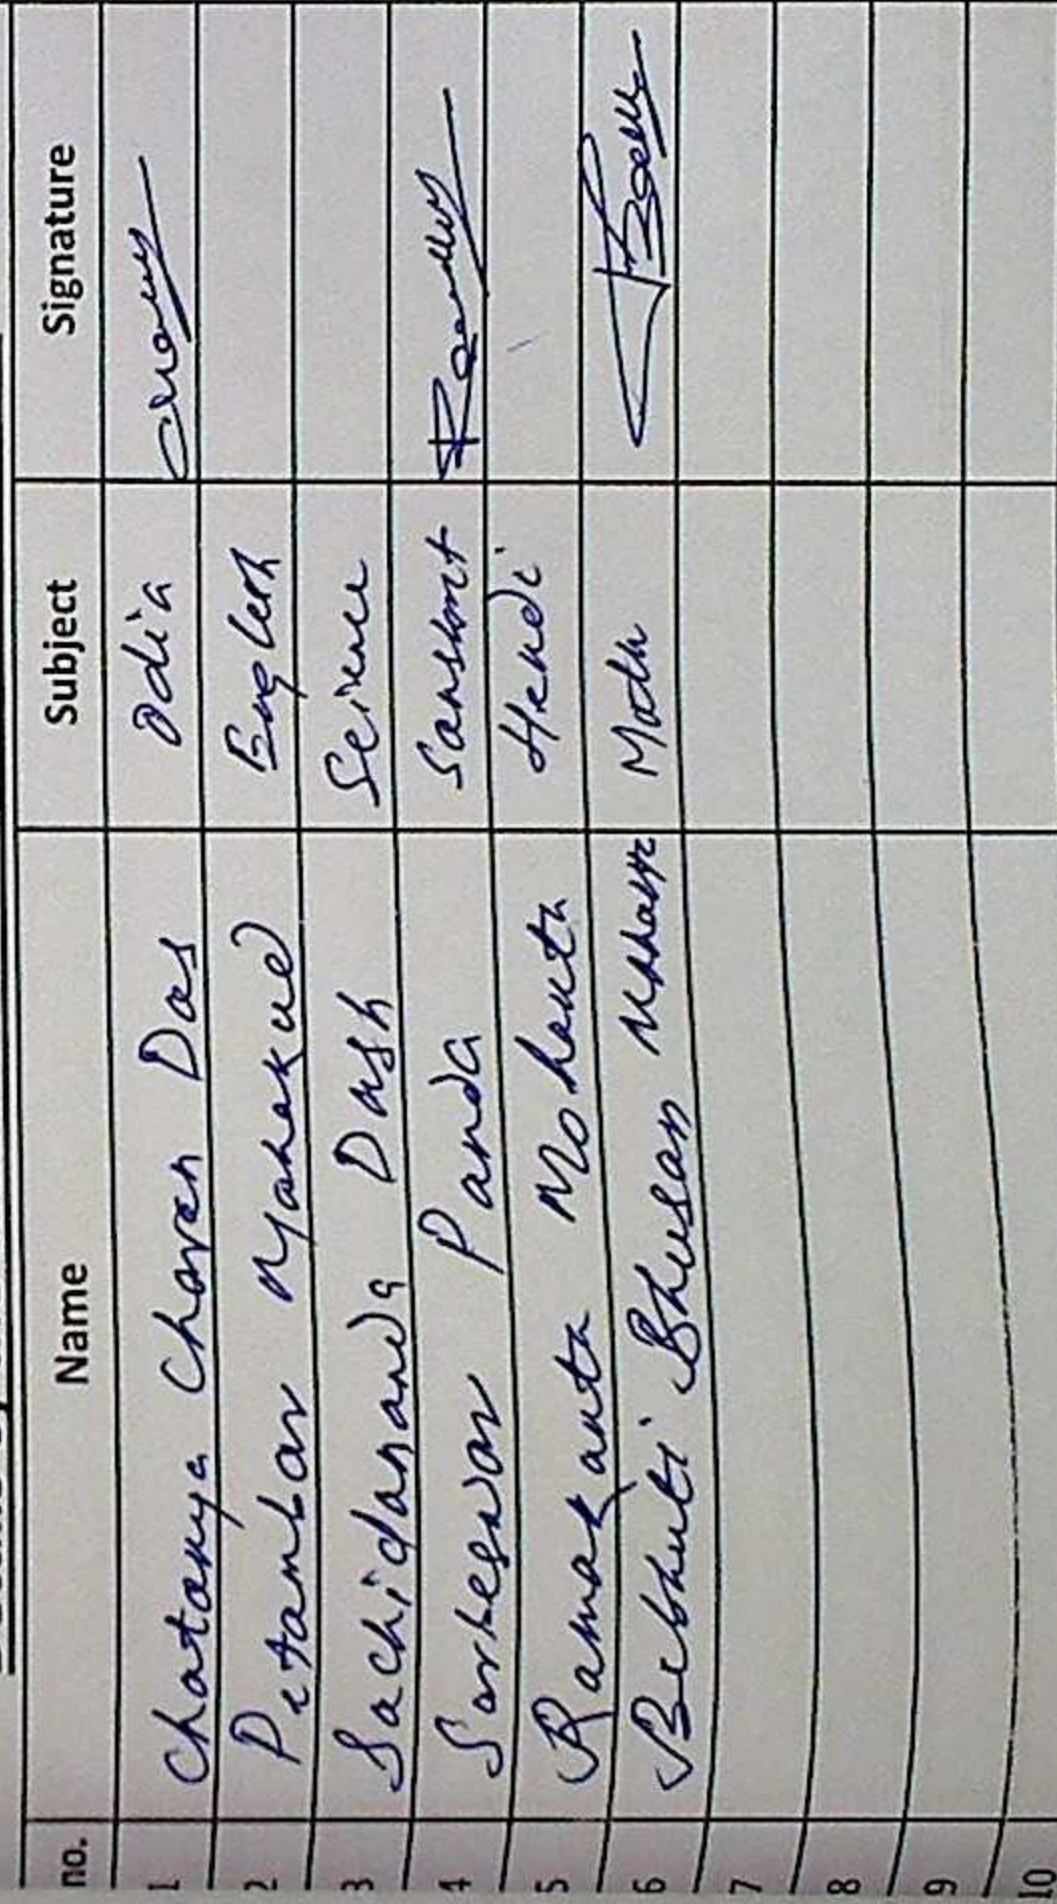 no. Name Subject Signature
1 Chatanya Charan Das Odia
2 Pitambar Mahakud English
3 Sachidananda Dash Science
4 Sarbeswar Panda Sanskrit
5 Ramakanta Mohanta Hendi
6 Bibhuti Bhusan Math
7
8
9
10